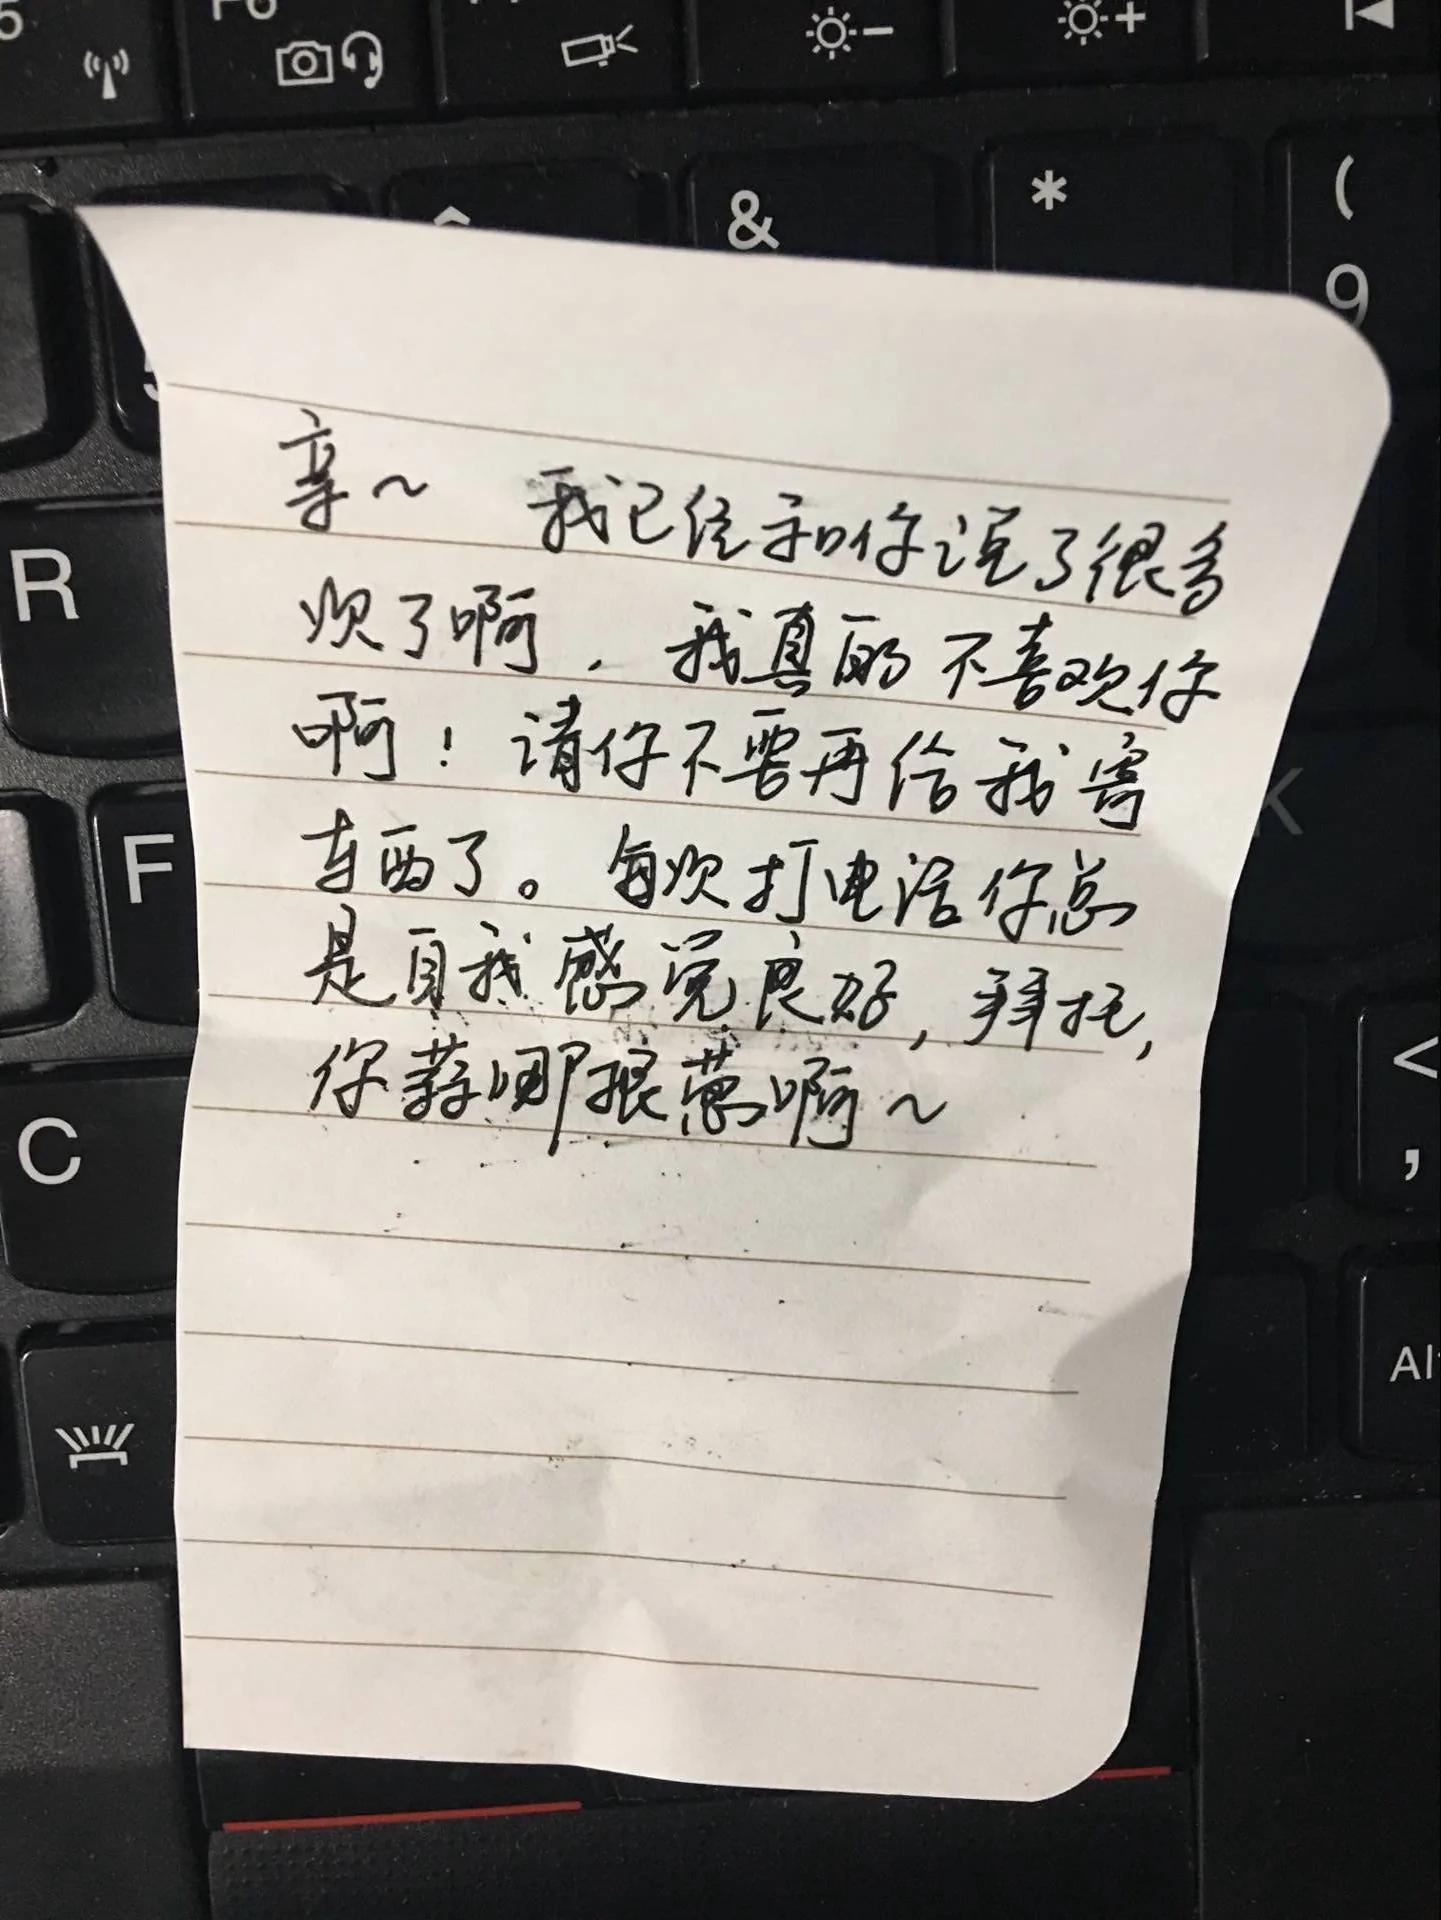 F6
&
*
(
9
R
K
F
C
<
,
Al
亲~ 我已经和你说了很多
次了啊，我真的不喜欢你
啊！请你不要再给我寄
东西了。每次打电话你总
是自我感觉良好，拜托，
你蒜哪根葱啊~